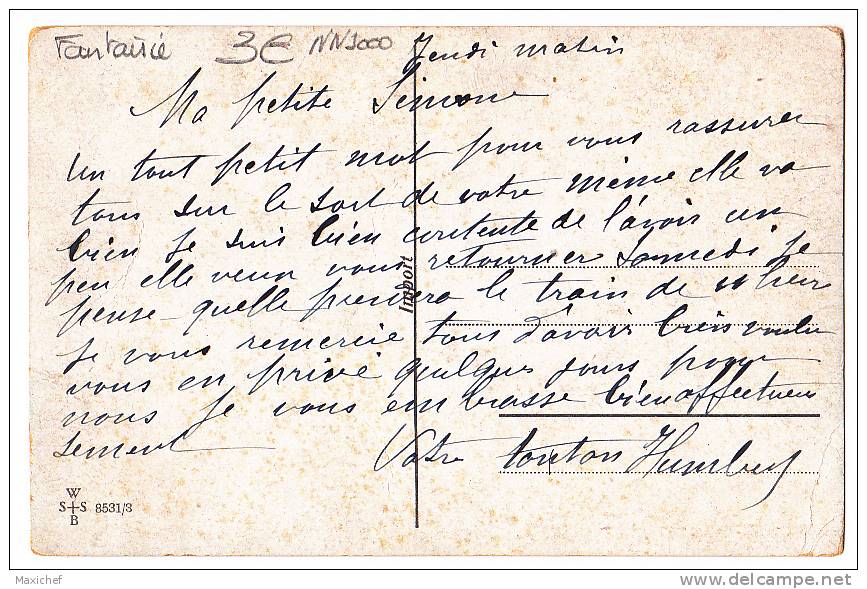 Fantaisie 3€ NN1000 Jeudi matin
Ma petite Simone
un tout petit mot pour vous rassurer
tous sur le sort de votre mémé elle va
bien je suis bien contente de l'avoir un
peu elle veux vous retourner Samedi je
pense quelle prendera le train de 11 heur
Je vous remercie tous d'avoir bien voulu
vous en privé quelques jours pour
nous Je vous embrasse bien affectueu
sement
Votre tonton Humbert
Import
W
S S 8531/3
B
Maxichef
www.delcampe.net